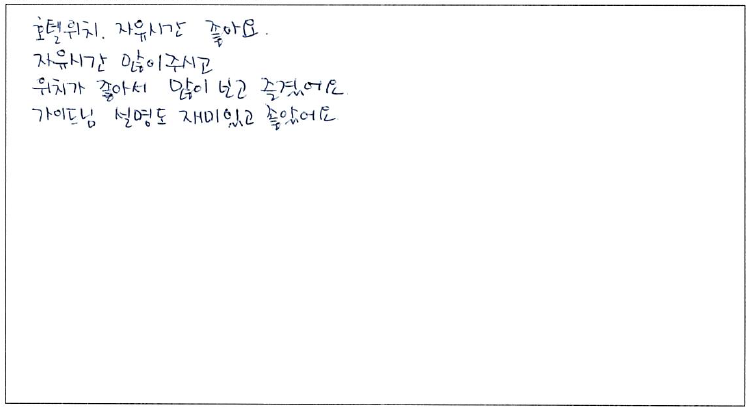 호텔위치. 자유시간 좋아요.
자유시간 많이주시고
위치가 좋아서 많이 보고 즐겼어요
가이드님 설명도 재미있고 좋았어요